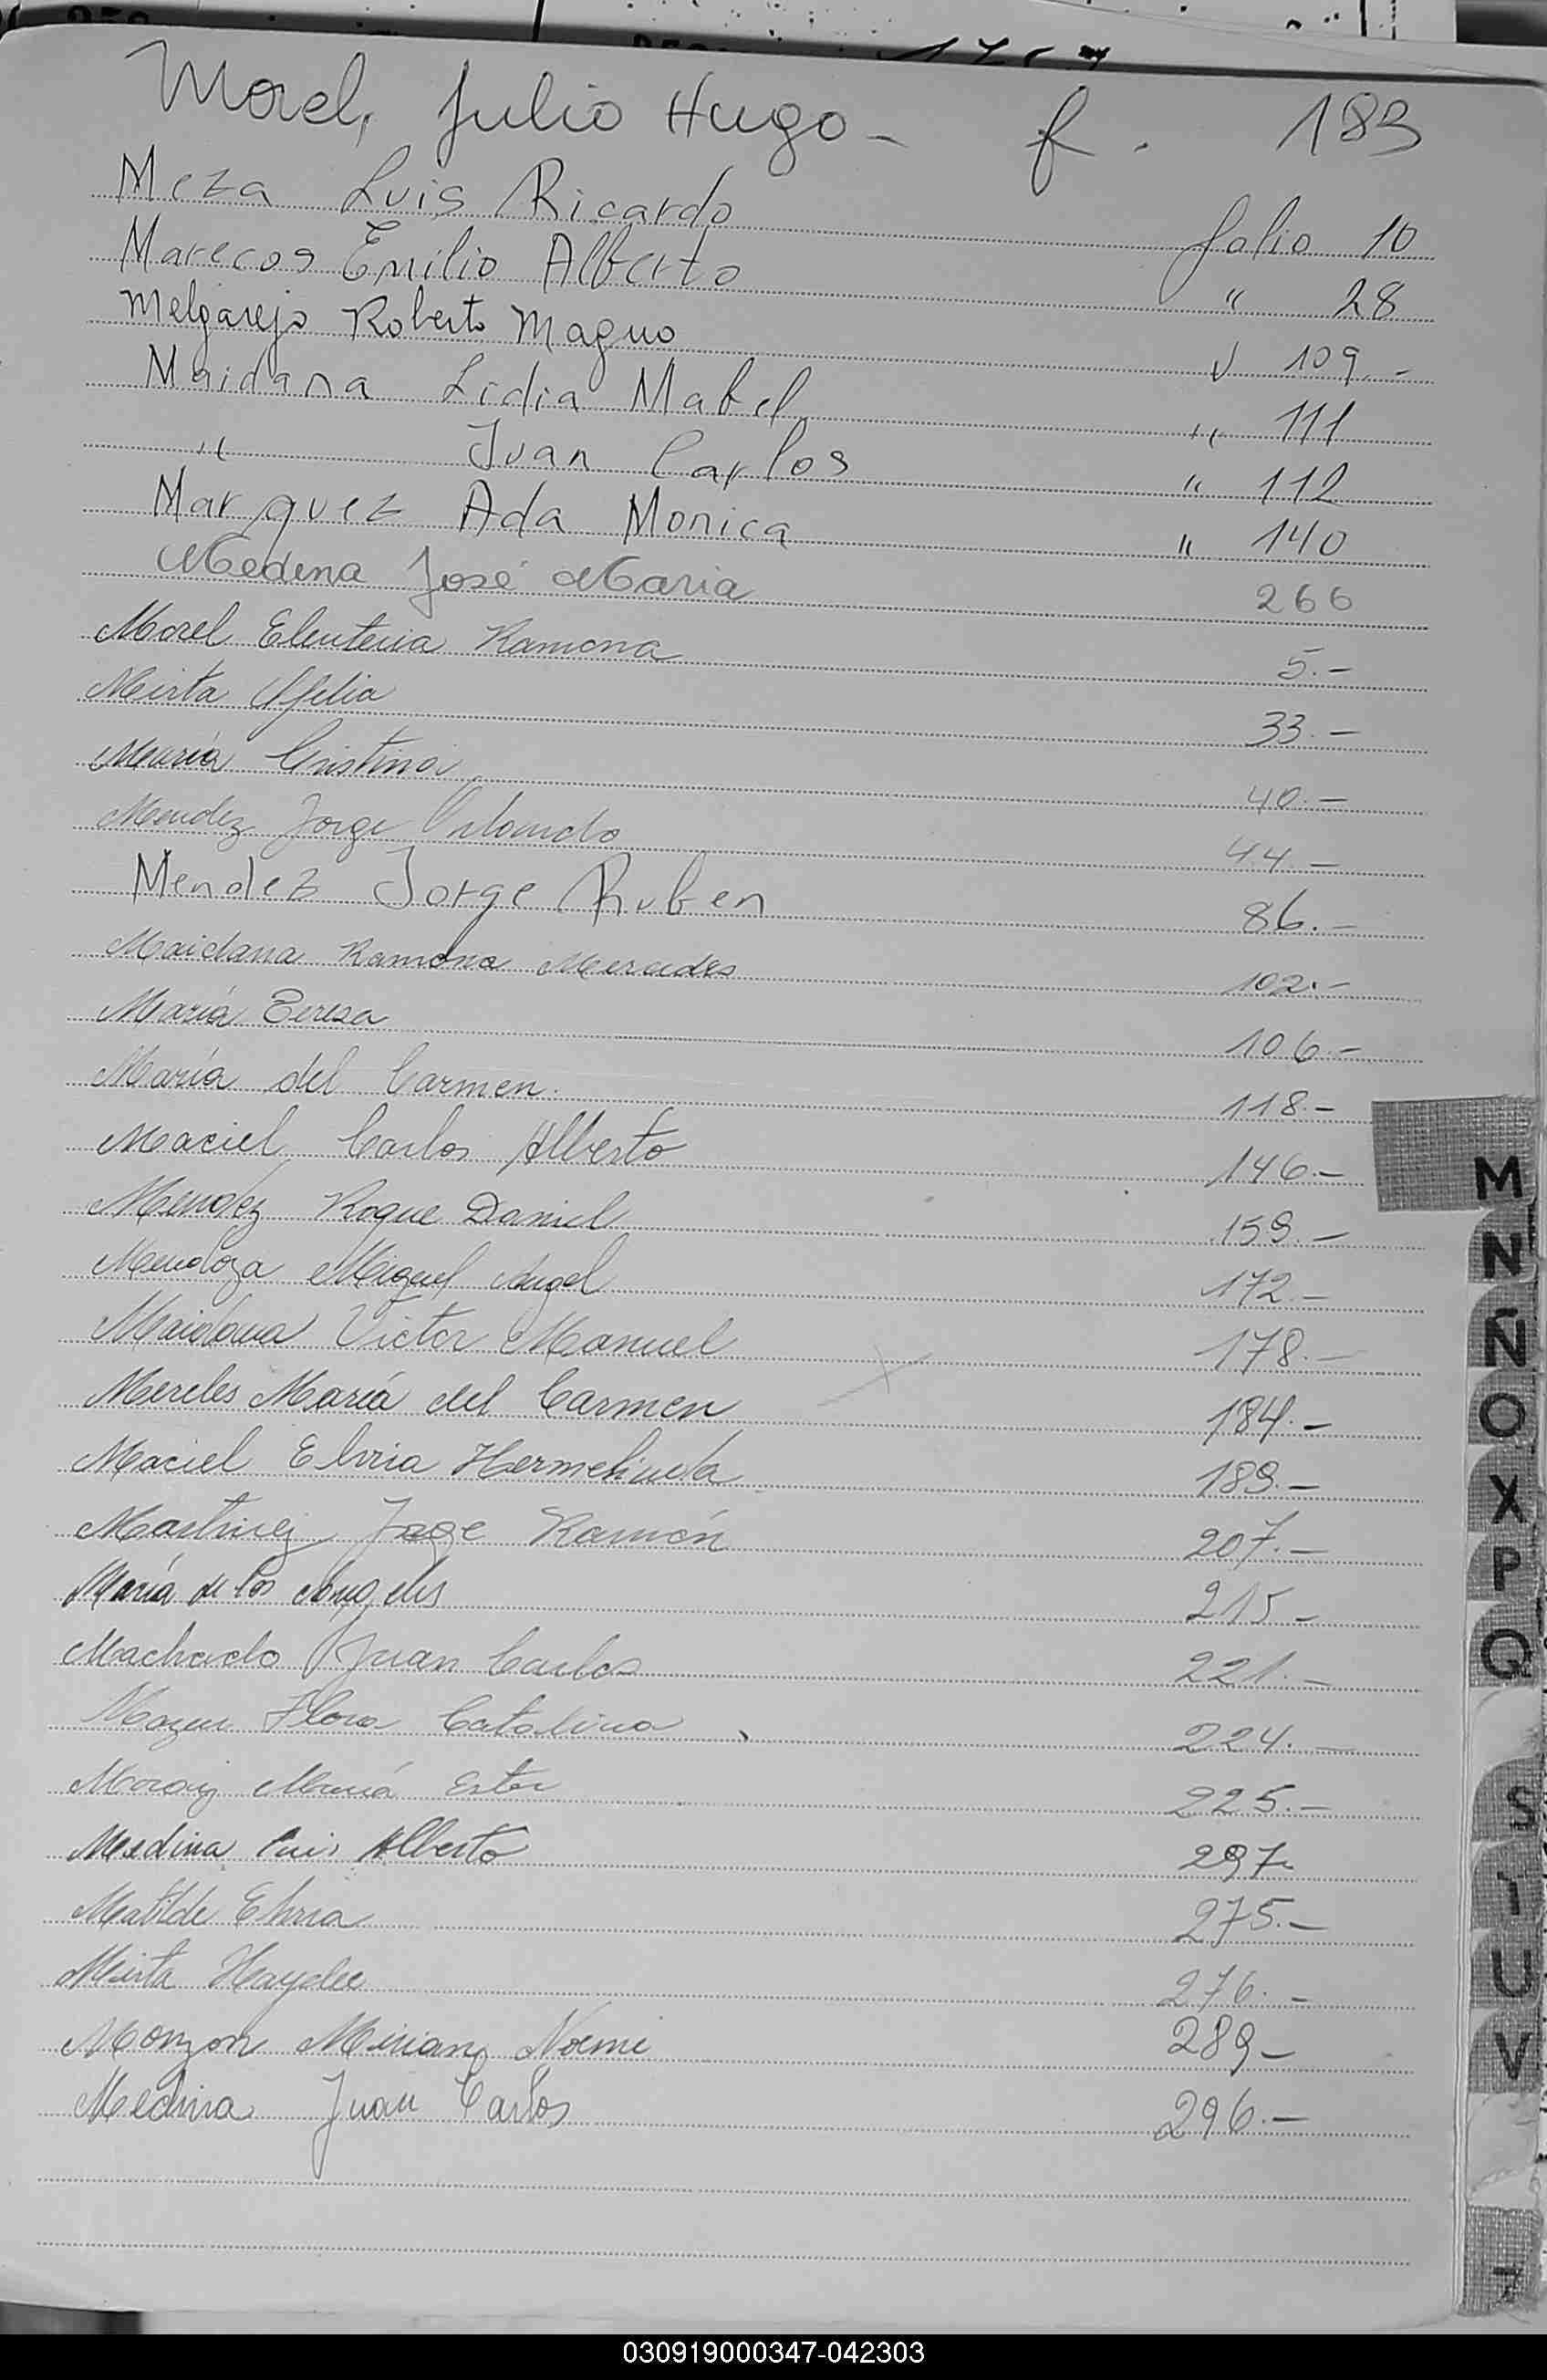 Morel, Julio Hugo - f. 183
Meza Luis Ricardo folio 10
Marecos Emilio Alberto " 28
Melgarejo Roberto Magno 109.-
Maidana Lidia Mabel " 111
" Juan Carlos " 112
Marquez Ada Monica " 140
Medina José Maria 266
Morel Eleuteria Ramona 5.-
Mirta Ofelia 33.-
María Cristina 40.-
Mendez Jorge Orlando 44.-
Mendez Jorge Ruben 86.-
Maidana Ramona Mercedes 102.-
María Teresa 106.-
María del Carmen. 118.-
Maciel Carlos Alberto 146.-
Mendez Roque Daniel 159.-
Mendoza Miguel Angel 172.-
Maidana Victor Manuel 178.-
Mereles María del Carmen 184.-
Maciel Elvira Hermelinda 189.-
Martinez Jorge Ramón 207.-
María de los Angeles 215-
Machado Juan Carlos 221.-
Flora Catalina 224.-
María Ester 225.-
Medina Luis Alberto
Matilde Elvira 275.-
Mirta Haydee 276.-
Monzon Mirian Noemi 289-
Medina Juan Carlos 296.-
M
N
Ñ
O
X
P
Q
S
U
V
030919000347-042303